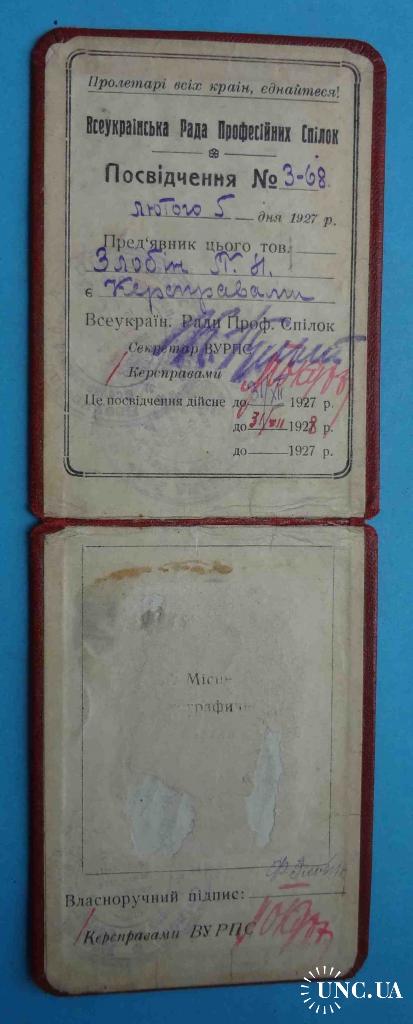 Пролетарі всіх країн, єднайтеся!
Всеукраїнська Рада Професійних Спілок
Посвідчення № 3-68
лютого 5 дня 1927 р.
Пред'явник цього тов.
Злобін П. Н.
є Керсправами
Всеукраїн. Ради Проф. Спілок
Секретар ВУРПС
Керсправами
Це посвідчення дійсне до 31/XII 1927 р.
до 31/XII 1928 р.
до 1927 р.
Місце
Власноручний підпис:
Керсправами ВУРПС
UNC.UA